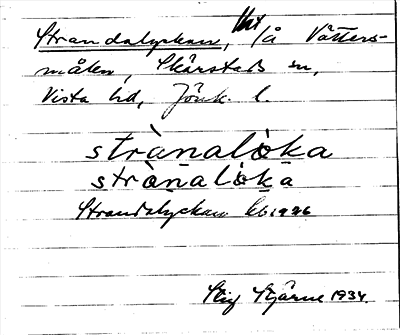 Strandalyckan, tht, på Vätters-
målen, Skärstads sn,
Vista hd, Jönk. l.
strànalo̝ka
strànalo̝ka
Strandalyckan kb 1926
Stig Stjärne 1934.